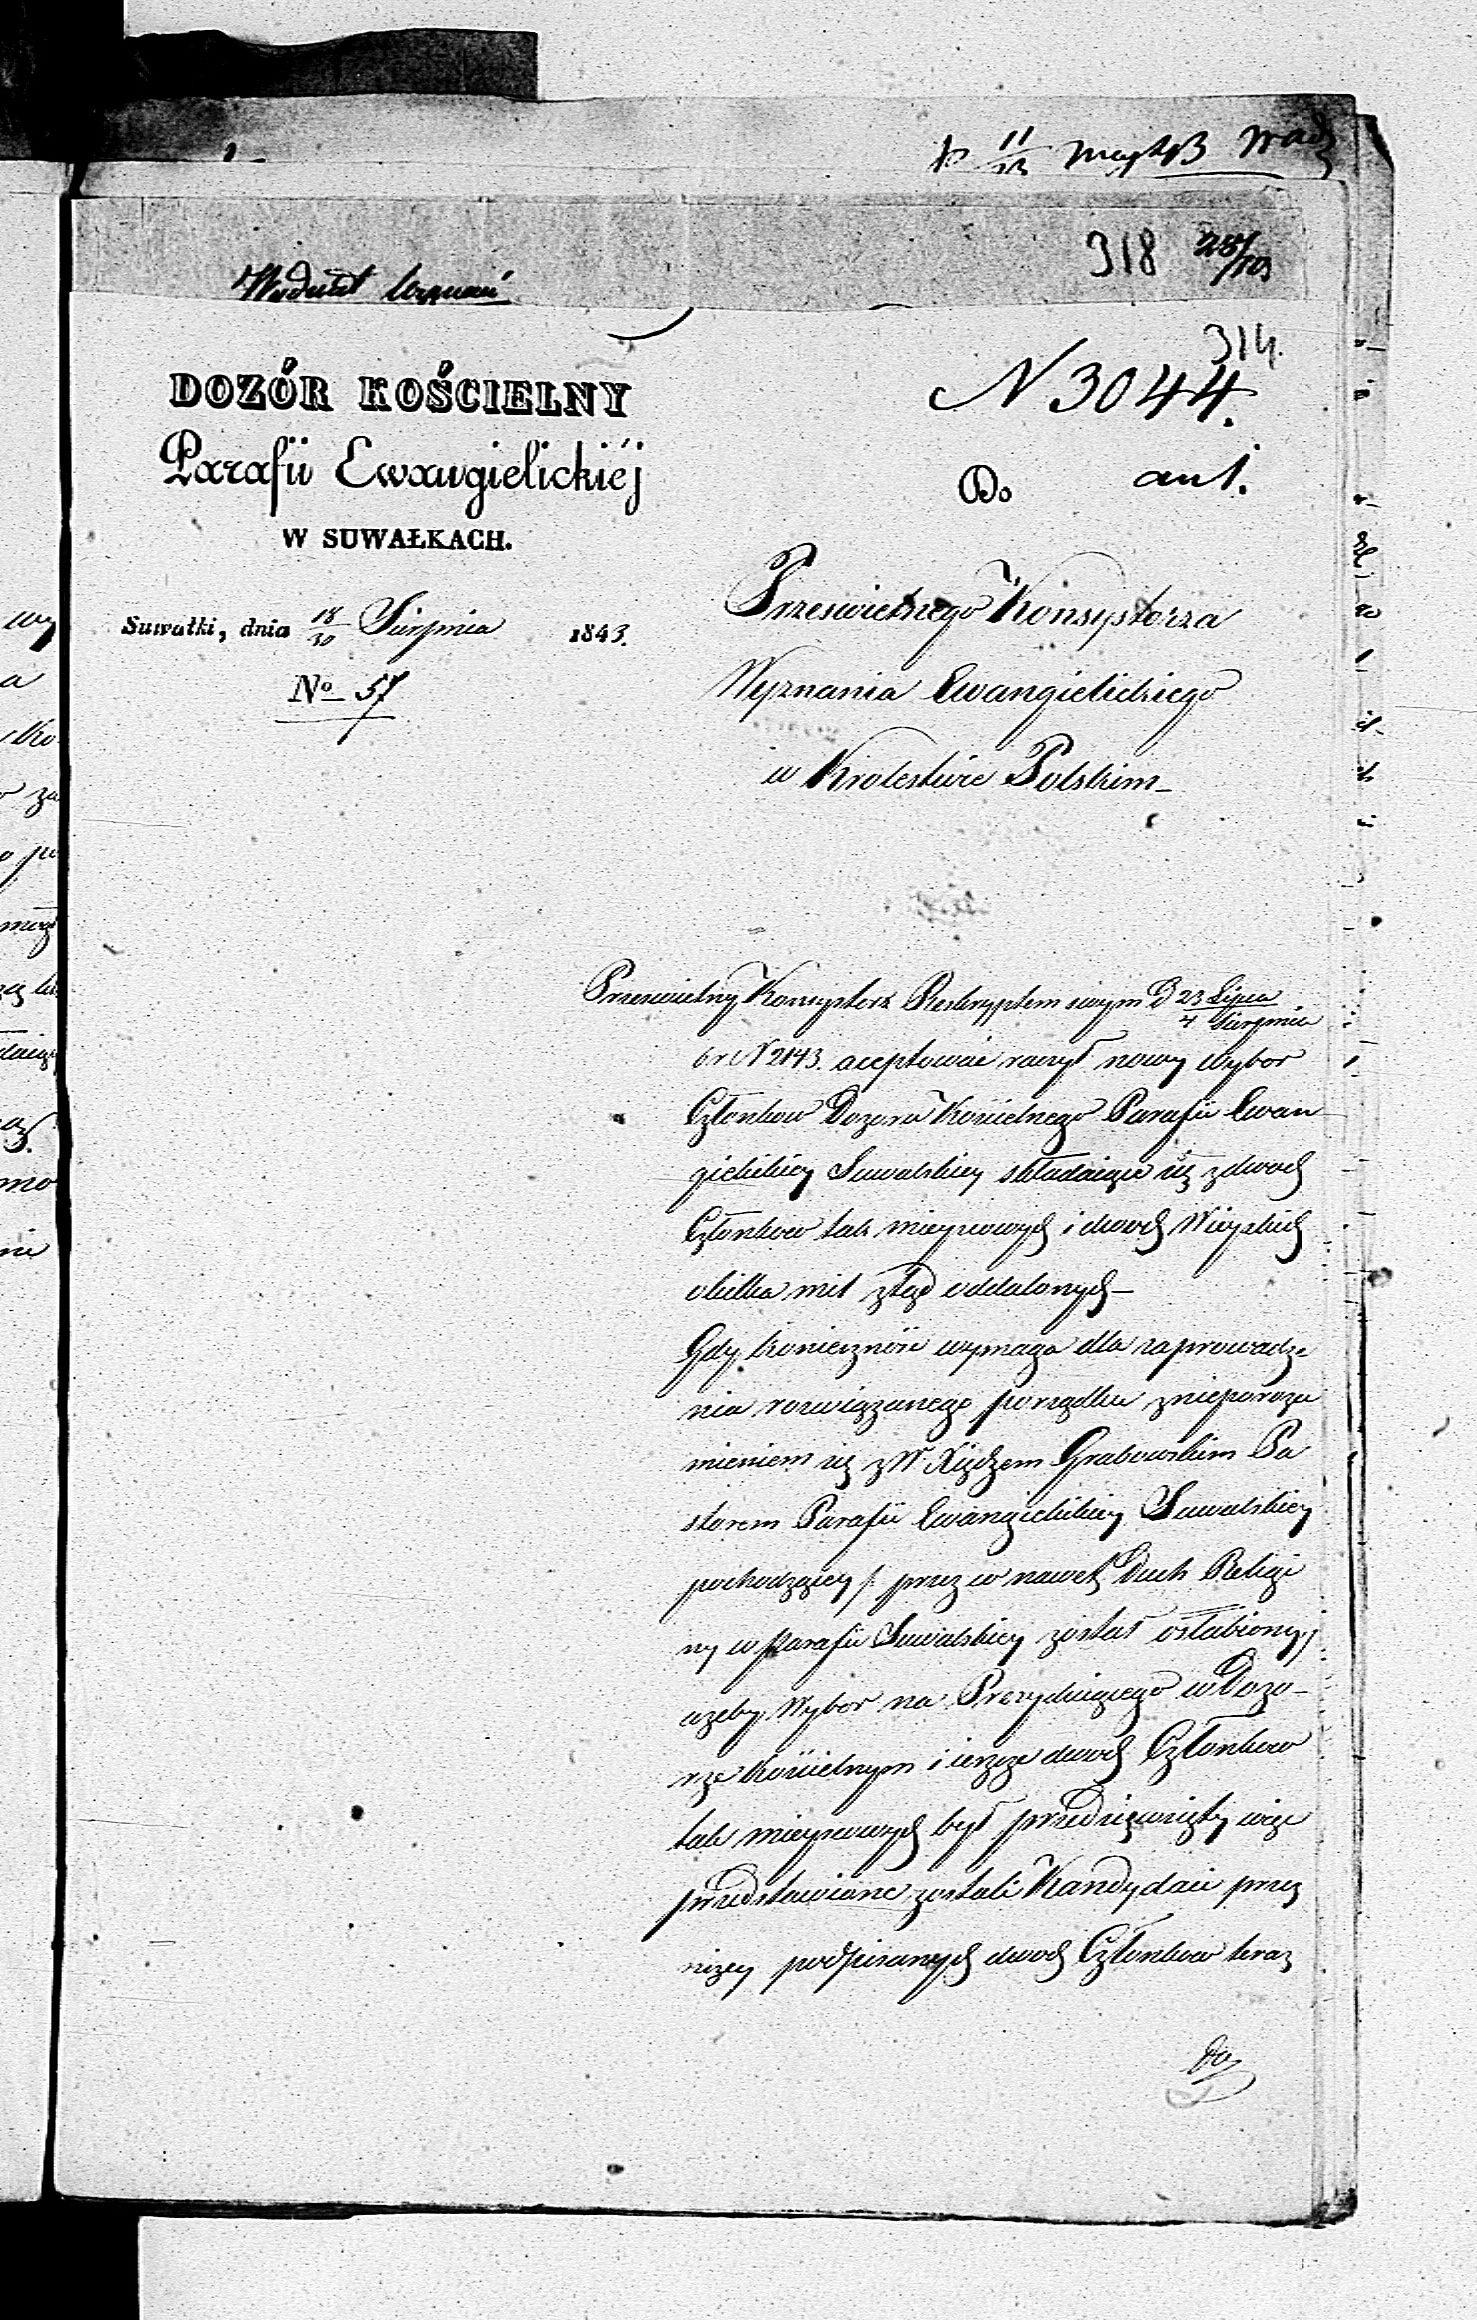 318 28/10
Wydział Wyznań
314.
DOZÓR KOŚCIELNY
Parafii Ewangielickiéj
W SUWAŁKACH.
N 3044.
Do
Suwałki, dnia 18/30 Sierpnia 1843.
No 57
Prześwietnego Konsystorza
Wyznania Ewangielickiego
w Krolestwie Polskim
Prześwietny Konsystorz Reskryptem swym D 23 Lipca / 4 Sierpnia
br N 2143. acceptować raczył nowy wybor
Członkow Dozoru Kościelnego Parafii Ewan
gielickiey Suwalskiey składaiący się z dwoch
Członkow tak mieyscowych i dwoch Wieyskich
o kilka mil ztąd oddalonych
Gdy konieczność wymaga dla zaprowadze
nia rozwiązanego porządku z nieporozu
mieniem się z W Xiędzem Grabowskim Pa
storem Parafii Ewangielickiey Suwalskiey
pochodzącey /: przez co nawet Duch Religi
ny w Parafii Suwalskiey został osłabiony;
azeby Wybor na Prezyduiącego w Dozo-
rze Kościelnym i ieszcze dwoch Członkow
tak mieyscowych był przedsięwzięty więc
przedstawione zostali Kandydaci przez
nizey podpisanych dwoch Członkow teraz